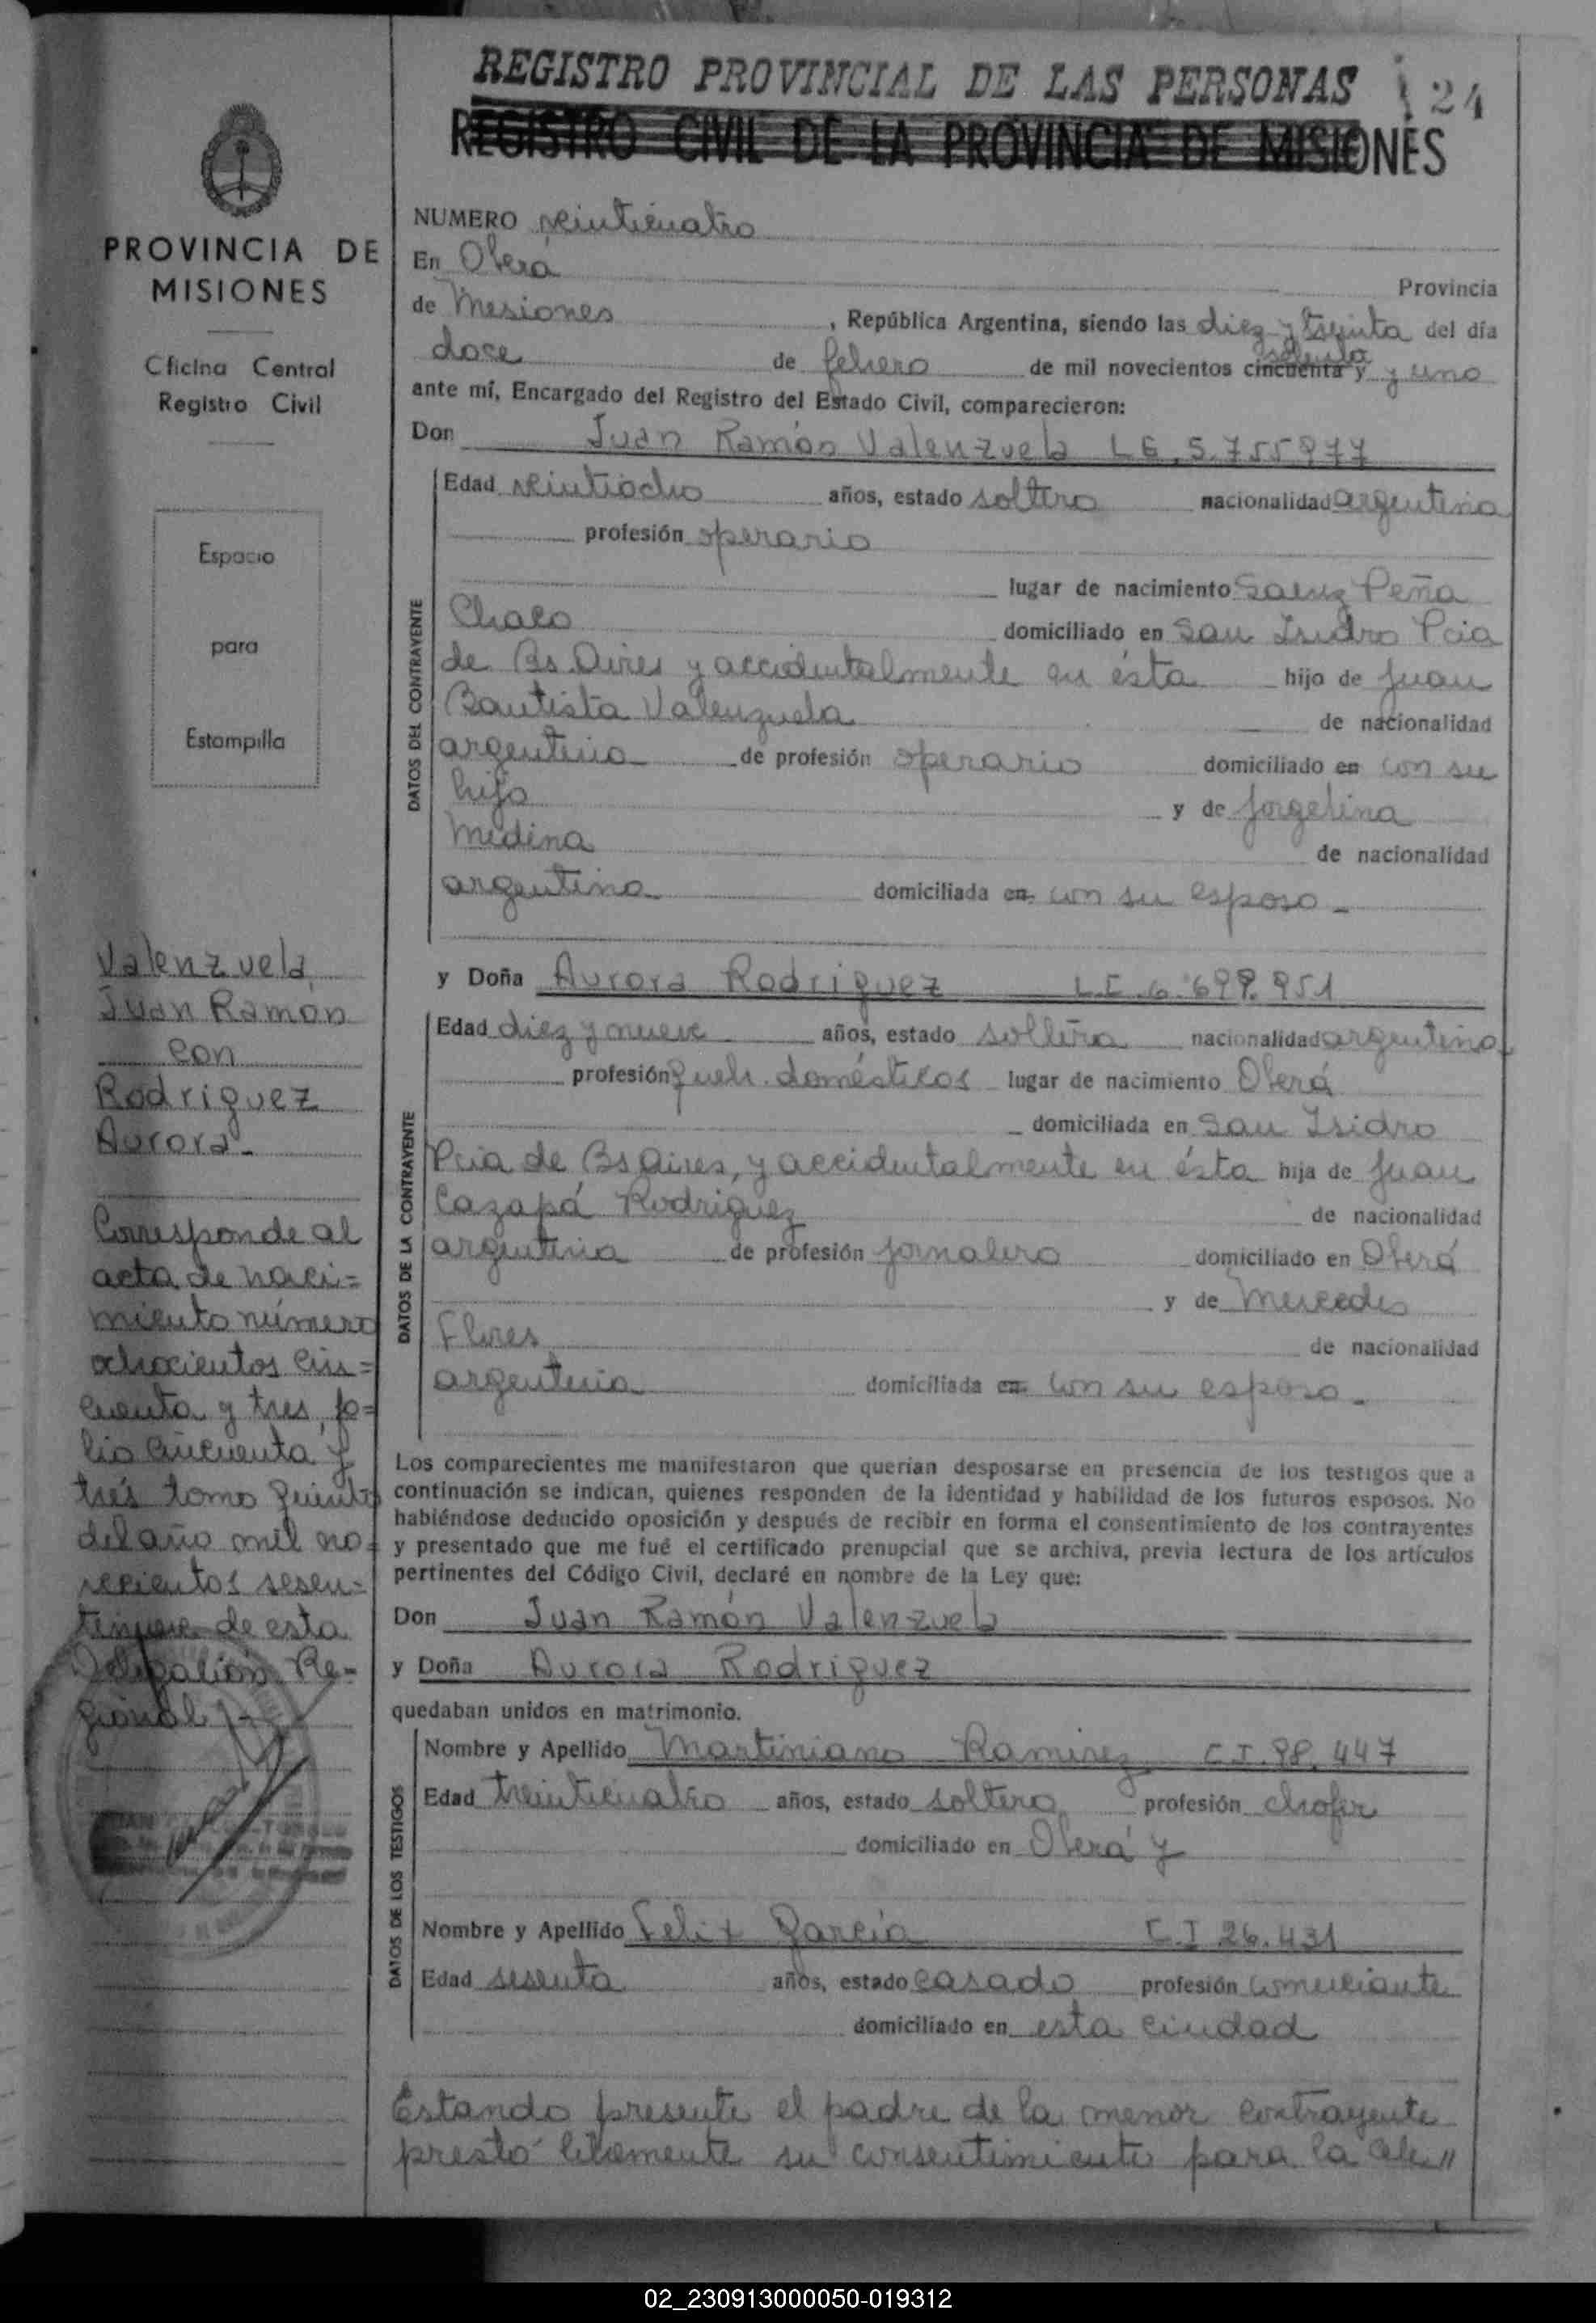 REGISTRO PROVINCIAL DE LAS PERSONAS
24
REGISTRO CIVIL DE LA PROVINCIA DE MISIONES
PROVINCIA DE
MISIONES
Oficina Central
Registro Civil
Espacio
para
Estampilla
Valenzuela
Juan Ramón
con
Rodriguez
Aurora.-
Corresponde al
acta de naci=
miento número
ochocientos cin=
cuenta y tres, fo=
lio cincuenta y
trés tomo quinto
del año mil no-
vecientos sesen-
de esta
Delegación Re-
gional
NUMERO veinticuatro
En Oberá Provincia
de Misiones, República Argentina, siendo las diez y treinta del día
doce de febrero de mil novecientos cincuenta y setenta y uno
ante mí, Encargado del Registro del Estado Civil, comparecieron:
Don Juan Ramón Valenzuela L E. 5.755977
DATOS DEL CONTRAYENTE
Edad veintiocho años, estado soltero nacionalidad argentina
profesión operario
lugar de nacimiento Saenz Peña
Chaco domiciliado en San Isidro Pcia
de Bs Aires y accidentalmente en ésta hijo de Juan
Bautista Valenzuela de nacionalidad
argentina de profesión operario domiciliado en con su
hijo y de Jorgelina
Medina de nacionalidad
argentina domiciliada en con su esposo.-
y Doña Aurora Rodriguez L.C. 6.699.951
DATOS DE LA CONTRAYENTE
Edad diez y nueve años, estado soltera nacionalidad argentina
profesión queh. domésticos lugar de nacimiento Oberá
domiciliada en San Isidro
Pcia de Bs Aires, y accidentalmente en ésta hija de Juan
Cazapá Rodriguez de nacionalidad
argentina de profesión jornalero domiciliado en Oberá
y de Mercedes
Flores de nacionalidad
argentina domiciliada en con su esposo.-
Los comparecientes me manifestaron que querían desposarse en presencia de los testigos que a
continuación se indican, quienes responden de la identidad y habilidad de los futuros esposos. No
habiéndose deducido oposición y después de recibir en forma el consentimiento de los contrayentes
y presentado que me fué el certificado prenupcial que se archiva, previa lectura de los artículos
pertinentes del Código Civil, declaré en nombre de la Ley que:
Don Juan Ramón Valenzuela
y Doña Aurora Rodriguez
quedaban unidos en matrimonio.
DATOS DE LOS TESTIGOS
Nombre y Apellido Martiniano Ramirez C.I. 98.447
Edad treinticuatro años, estado soltero profesión chofer
domiciliado en Oberá y
Nombre y Apellido Felix García C.I 26.431
Edad sesenta años, estado casado profesión comerciante
domiciliado en esta ciudad
Estando presente el padre de la menor contrayente
prestó libremente su consentimiento para la cele//
02_230913000050-019312